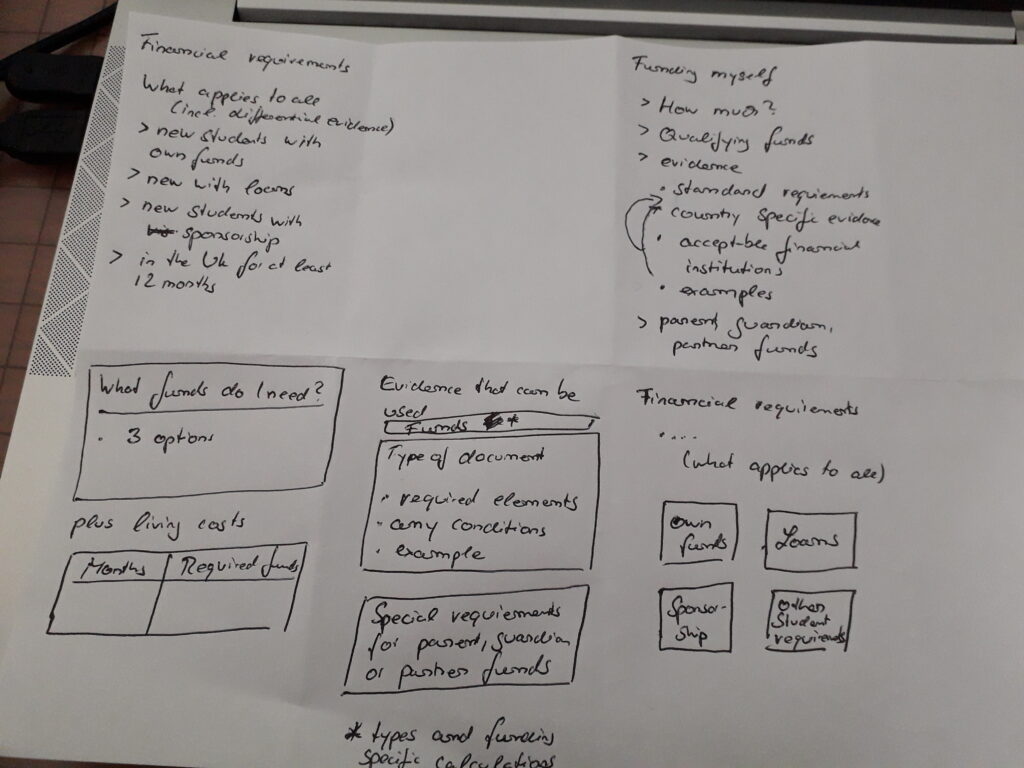 Financial requirements
What applies to all
(incl. differential evidence)
> new students with
own funds
> new with loans
> new students with
sponsorship
> in the UK for at least
12 months
Funding myself
> How much?
> Qualifying funds
> evidence
• standard requiements
* country specific evidence
• accept-ble financial
institutions
• examples
> parent, guardian,
partner funds
What funds do I need?
• 3 options
plus living costs
Months Required funds
Evidence that can be
used
Funds *
Type of document
• required elements
• any conditions
• example
Special requiements
for parent, guardian
or partner funds
* types and funding
specific calculations
Financial requirements
• ....
(what applies to all)
own
funds
Loans
Sponsor-
ship
Other
Student
requirements